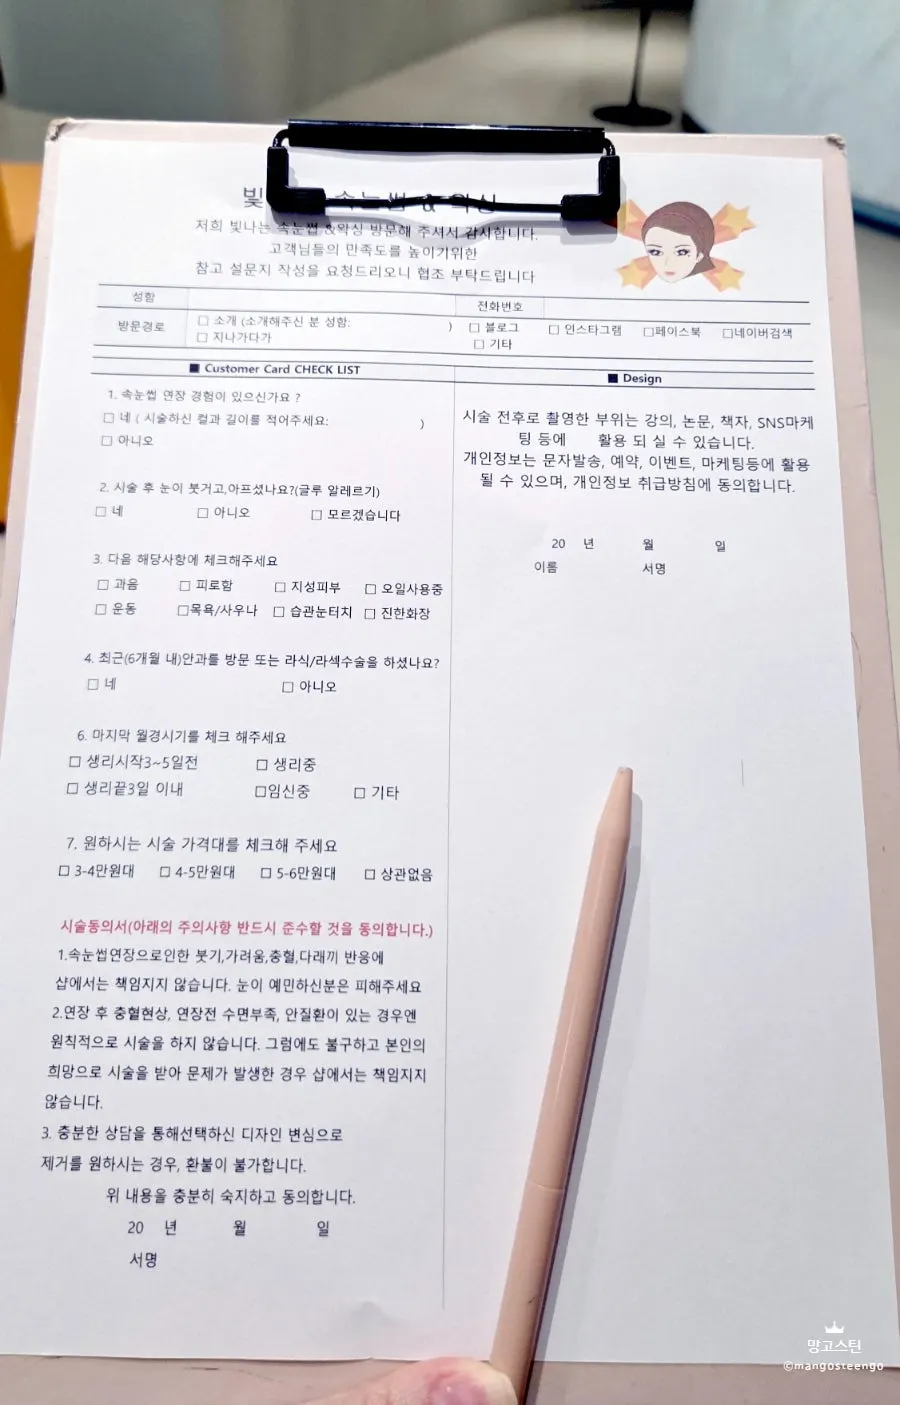 빛 속눈썹 & 왁싱
저희 빛나는 속눈썹 &왁싱 방문해 주셔서 감사합니다.
고객님들의 만족도를 높이기위한
참고 설문지 작성을 요청드리오니 협조 부탁드립니다
성함 전화번호
방문경로 □ 소개 (소개해주신 분 성함: ) □ 블로그 □ 인스타그램 □페이스북 □네이버검색
□ 지나가다가 □ 기타
■ Customer Card CHECK LIST
1. 속눈썹 연장 경험이 있으신가요 ?
□ 네 ( 시술하신 컬과 길이를 적어주세요: )
□ 아니오
2. 시술 후 눈이 붓거고,아프셨나요?(글루 알레르기)
□ 네 □ 아니오 □ 모르겠습니다
3. 다음 해당사항에 체크해주세요
□ 과음 □ 피로함 □ 지성피부 □ 오일사용중
□ 운동 □목욕/사우나 □ 습관눈터치 □ 진한화장
4. 최근(6개월 내)안과를 방문 또는 라식/라섹수술을 하셨나요?
□ 네 □ 아니오
6. 마지막 월경시기를 체크 해주세요
□ 생리시작3~5일전 □ 생리중
□ 생리끝3일 이내 □임신중 □ 기타
7. 원하시는 시술 가격대를 체크해 주세요
□ 3-4만원대 □ 4-5만원대 □ 5-6만원대 □ 상관없음
시술동의서(아래의 주의사항 반드시 준수할 것을 동의합니다.)
1.속눈썹연장으로인한 붓기,가려움,충혈,다래끼 반응에
샵에서는 책임지지 않습니다. 눈이 예민하신분은 피해주세요
2.연장 후 충혈현상, 연장전 수면부족, 안질환이 있는 경우엔
원칙적으로 시술을 하지 않습니다. 그럼에도 불구하고 본인의
희망으로 시술을 받아 문제가 발생한 경우 샵에서는 책임지지
않습니다.
3. 충분한 상담을 통해선택하신 디자인 변심으로
제거를 원하시는 경우, 환불이 불가합니다.
위 내용을 충분히 숙지하고 동의합니다.
20 년 월 일
서명
■ Design
시술 전후로 촬영한 부위는 강의, 논문, 책자, SNS마케
팅 등에 활용 되 실 수 있습니다.
개인정보는 문자발송, 예약, 이벤트, 마케팅등에 활용
될 수 있으며, 개인정보 취급방침에 동의합니다.
20 년 월 일
이름 서명
망고스틴
©mangosteengo